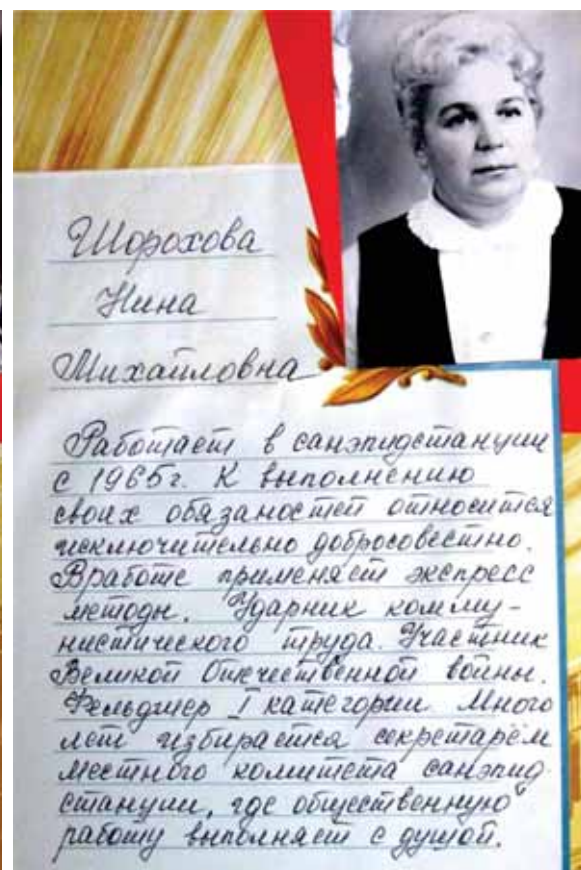 Шорохова
Нина
Михайловна
Работает в санэпидстанции
с 1965г. К выполнению
своих обязаностей относится
исключительно добросовестно.
В работе применяет экспресс
методы. Ударник комму-
нистического труда. Участник
Великой Отечественной войны.
Фельдшер I категории. Много
лет избирается секретарём
местного комитета санэпид-
станции, где общественную
работу выполняет с душой.